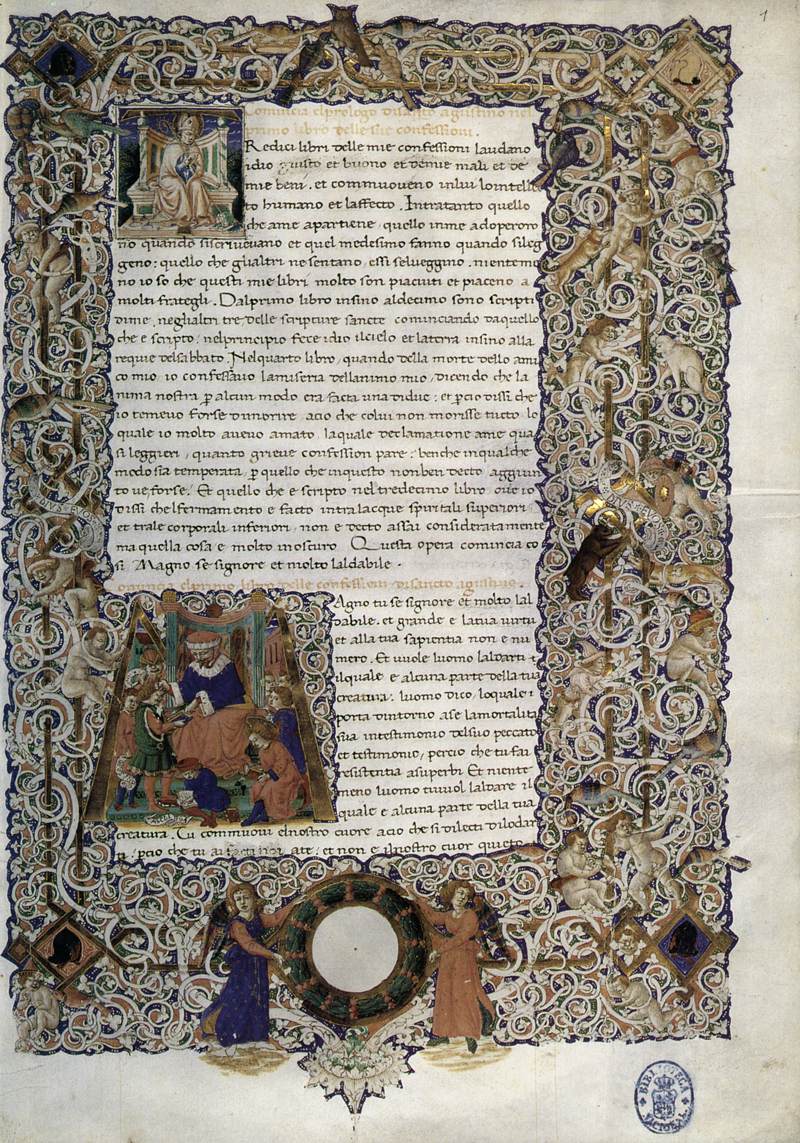 1
Comincia el prologo di sancto agustino nel
primo libro delle sue confessioni.
Redici libri delle mie confessioni laudano
idio giusto et buono et demie mali et de
mie beni. et commuoveno in lui lo intelle
to humano et laffecto. Intratanto quello
che ame apartiene quello inme adoperoro
no quando si scriveuano et quel medesimo fanno quando si leg
geno: quello che glialtri ne sentano essi selveggino. nientemo
no io so che questi mie libri molto son piaciuti et piaceno a
molti frategli. Dal primo libro insino al decimo sono scripti
dime. neglialtri tre delle scripture sancte cominciando da quello
che e scripto. nel principio fece idio il cielo et la terra insino alla
requie del sabbato. Nel quarto libro, quando della morte dello ami
co mio io confessauo la miseria dellanimo mio, dicendo che la
nima nostra p alcun modo era facta una di due: et percio dissi che
io temeuo forse di morire acio che colui non morisse tucto lo
quale io molto aueuo amato. laquale declamatione ame qua
si leggieri, quanto grieue confession pare: benche in qualche
modo sia temperata p quello che in questo non ben decto aggiun
to ue, forse. Et quello che e scripto nel tredecimo libro oue io
dissi chel fermamento e facto intra lacque spiritali superiori
et tra le corporali inferiori non e decto assai consideratamente
ma quella cosa e molto in oscuro. Questa opera comincia co
si. Magno se signore et molto laldabile.
omincia el primo libro delle confessioni di sancto agustino.
Agno tu se signore et molto lal
dabile. et grande e la tua uirtu
et alla tua sapientia non e nu
mero. Et uuole luomo laldarti
ilquale e alcuna parte della tua
creatura. luomo dico, loquale
porta dintorno ase la mortalita
sua intestimonio del suo peccato
et testimonio, percio che tu fai
resistentia a superbi. Et niente
meno luomo ti uuol laldare il
quale e alcuna parte della tua
creatura. Tu commuoui el nostro cuore acio che si dilecti di lodar
ti. pcio che tu ai facti noi ate: et non e il nostro cuor quieto
BIBLIOTECA
NACIONAL